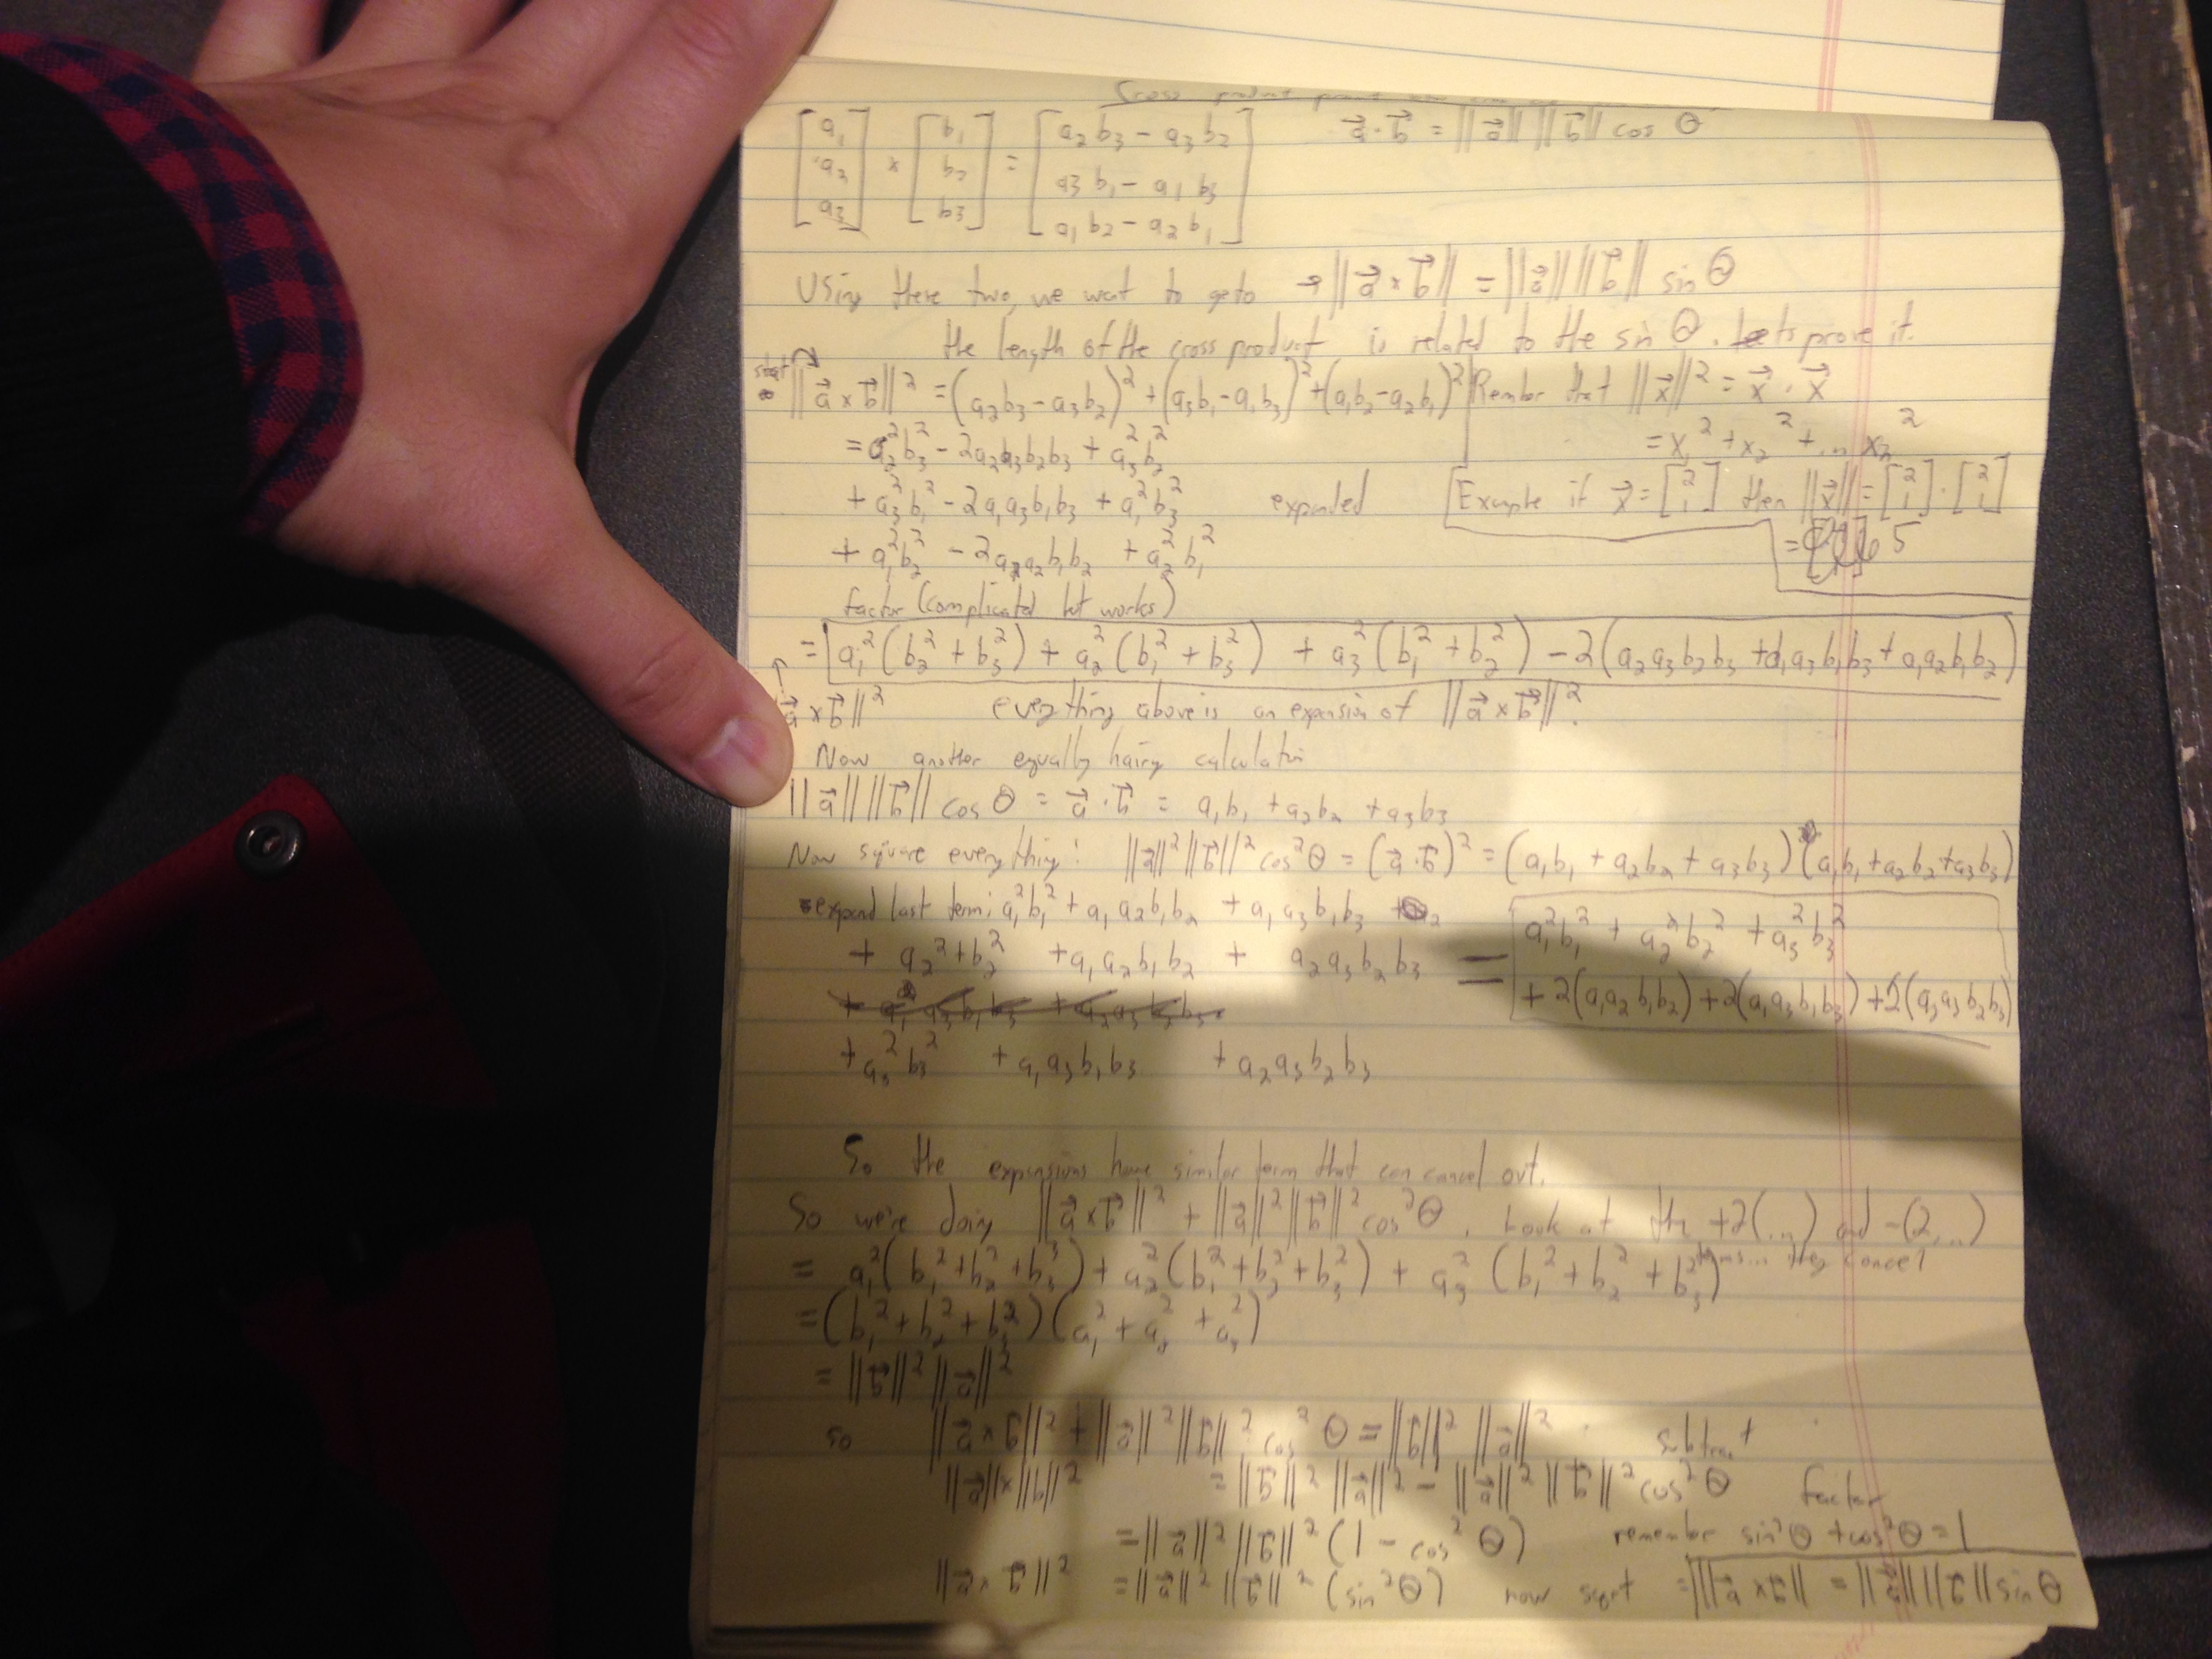 Cross product
[a₁ a₂ a₃] × [b₁ b₂ b₃] = [a₂b₃ - a₃b₂ a₃b₁ - a₁b₃ a₁b₂ - a₂b₁] a⃗·b⃗ = ||a⃗|| ||b⃗|| cos Θ
Using these two, we want to go to → ||a⃗ × b⃗|| = ||a⃗|| ||b⃗|| sin Θ
the length of the cross product is related to the sin Θ. Lets prove it.
start
||a⃗ × b⃗||² = (a₂b₃ - a₃b₂)² + (a₃b₁ - a₁b₃)² + (a₁b₂ - a₂b₁)² Rember that ||x⃗||² = x⃗ · x⃗
= a₂²b₃² - 2a₂a₃b₂b₃ + a₃²b₂² = x₁² + x₂² + ... x₂²
+ a₃²b₁² - 2a₁a₃b₁b₃ + a₁²b₃² expanded [Example if x⃗ = [2 1] then ||x⃗|| = [2 1] · [2 1]
+ a₁²b₂² - 2a₁a₂b₁b₂ + a₂²b₁² = 5
factor (complicated but works)
= a₁²(b₂² + b₃²) + a₂²(b₁² + b₃²) + a₃²(b₁² + b₂²) - 2(a₂a₃b₂b₃ + a₁a₃b₁b₃ + a₁a₂b₁b₂)
a⃗ × b⃗||² everything above is an expansion of ||a⃗ × b⃗||².
Now another equally hairy calculation
||a⃗|| ||b⃗|| cos Θ = a⃗ · b⃗ = a₁b₁ + a₂b₂ + a₃b₃
Now square everything: ||a⃗||² ||b⃗||² cos²Θ = (a⃗·b⃗)² = (a₁b₁ + a₂b₂ + a₃b₃)(a₁b₁ + a₂b₂ + a₃b₃)
expand last term: a₁²b₁² + a₁a₂b₁b₂ + a₁a₃b₁b₃
+ a₂² + b₂² + a₁a₂b₁b₂ + a₂a₃b₂b₃ = a₁²b₁² + a₂²b₂² + a₃²b₃²
+ 2(a₁a₂b₁b₂) + 2(a₁a₃b₁b₃) + 2(a₃a₃b₂b₃)
+ a₃²b₃² + a₁a₃b₁b₃ + a₂a₃b₂b₃
So the expansions have similar term that can cancel out.
So we're doing ||a⃗ × b⃗||² + ||a⃗||² ||b⃗||² cos²Θ. Look at the +2(...) and -(2...)
terms... they cancel
= a₁²(b₁² + b₂² + b₃²) + a₂²(b₁² + b₂² + b₃²) + a₃²(b₁² + b₂² + b₃²)
= (b₁² + b₂² + b₃²)(a₁² + a₂² + a₃²)
= ||b⃗||² ||a⃗||²
so ||a⃗ × b⃗||² + ||a⃗||² ||b⃗||² cos² Θ = ||b⃗||² ||a⃗||² subtract
||a⃗|| × ||b⃗||² = ||b⃗||² ||a⃗||² - ||a⃗||² ||b⃗||² cos² Θ factor
= ||a⃗||² ||b⃗||² (1 - cos² Θ) remember sin²Θ + cos²Θ = 1
||a⃗ × b⃗||² = ||a⃗||² ||b⃗||² (sin²Θ) now sqrt = ||a⃗ × b⃗|| = ||a⃗|| ||b⃗|| sin Θ